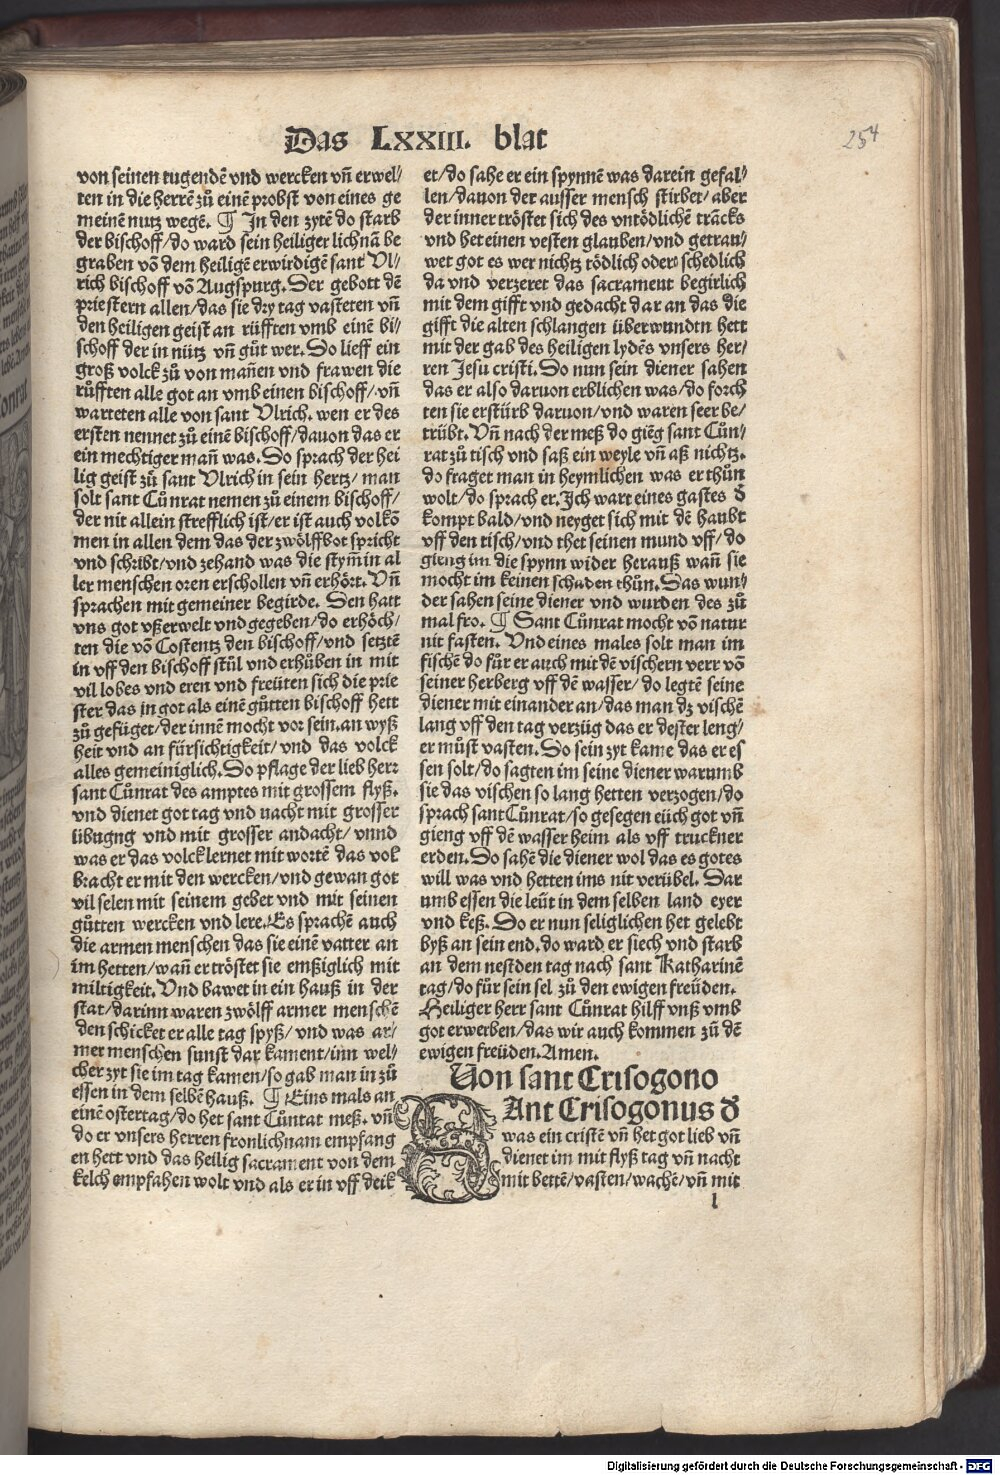 Das LXXIII. blat
254
von seinen tugendē vnd wercken vn̄ erwel/
ten in die herrē zů einē probst von eines ge
meinē nutz wegē. ¶ In den zytē do starb
der bischoff/do ward sein heiliger lichnā be
graben vō dem heiligē erwirdigē sant Vl/
rich bischoff vō Augspurg. Der gebott dē
priestern allen/das sie dry tag vasteten vn̄
den heiligen geist an růfften vmb einē bi/
schoff der in nütz vn̄ gůt wer. Do lieff ein
groß volck zů von mañen vnd frawen die
růfften alle got an vmb einen bischoff/vn̄
warteten alle von sant Vlrich. wen er des
ersten nennet zů einē bischoff/dauon das er
ein mechtiger mañ was. Do sprach der hei
lig geist zů sant Vlrich in sein hertz/man
solt sant Cůnrat nemen zů einem bischoff/
der nit allein strefflich ist/er ist auch volkō
men in allen dem das der zwölffbot spricht
vnd schribt/vnd zehand was die stym̄ in al
ler menschen oren erschollen vn̄ erhört. Vn̄
sprachen mit gemeiner begirde. Den hatt
vns got vßerwelt vnd gegeben/do erhöch/
ten die vō Costentz den bischoff/vnd setztē
in vff den bischoff stůl vnd erhůben in mit
vil lobes vnd eren vnd freüten sich die prie
ster das in got als einē gůtten bischoff hett
zů gefüget/der innē mocht vor sein.an wyß
heit vnd an fürsichtigkeit/vnd das volck
alles gemeiniglich. Do pflage der lieb herr
sant Cůnrat des amptes mit grossem flyß.
vnd dienet got tag vnd nacht mit grosser
übugng vnd mit grosser andacht/vnnd
was er das volck lernet mit wortē das vol
bracht er mit den wercken/vnd gewan got
vil selen mit seinem gebet vnd mit seinen
gůtten wercken vnd lere. Es sprachē auch
die armen menschen das sie einē vatter an
im hetten/wañ er tröstet sie emßiglich mit
miltigkeit. Vnd bawet in ein hauß in der
stat/darinn waren zwölff armer menschē
den schicket er alle tag spyß/vnd was ar/
mer menschen sunst dar kament/inn wel/
cher zyt sie im tag kamen/so gab man in zů
essen in dem selbē hauß. ¶ Eins mals an
einē ostertag/do het sant Cůntat meß. vn̄
do er vnsers herren fronlichnam empfang
en hett vnd das heilig sacrament von dem
kelch empfahen wolt vnd als er in vff deik
et/do sahe er ein spynnē was darein gefal/
len/dauon der ausser mensch stirbet/aber
der inner tröstet sich des vntödlichē trācks
vnd het einen vesten glauben/vnd getrau/
wet got es wer nichtz tödlich oder schedlich
da vnd verzeret das sacrament begirlich
mit dem gifft vnd gedacht dar an das die
gifft die alten schlangen überwundtn hett
mit der gab des heiligen lydēs vnsers her/
ren Jesu cristi. Do nun sein diener sahen
das er also daruon erblichen was/do forch
ten sie er stürb daruon/vnd waren seer be/
trübt. Vn̄ nach der meß do giēg sant Cůn/
rat zů tisch vnd saß ein weyle vn̄ aß nichtz.
do fraget man in heymlichen was er thůn
wolt/do sprach er. Ich wart eines gastes d̄
kompt bald/vnd neyget sich mit dē haubt
vff den tisch/vnd thet seinen mund vff/do
gieng im die spynn wider herauß wañ sie
mocht im keinen schaden thůn. Das wun/
der sahen seine diener vnd wurden des zů
mal fro. ¶ Sant Cůnrat mocht vō natur
nit fasten. Vnd eines males solt man im
fischē do fůr er auch mit dē vischern verr vō
seiner herberg vff dē wasser/do legtē seine
diener mit einander an/das man dz vischē
lang vff den tag verzüg das er dester leng/
er můst vasten. Do sein zyt kame das er es
sen solt/do sagten im seine diener warumb
sie das vischen so lang hetten verzogen/do
sprach sant Cůnrat/so gesegen eüch got vn̄
gieng vff dē wasser heim als vff truckner
erden. Do sahē die diener wol das es gotes
will was vnd hetten ims nit verübel. Dar
umb essen die leüt in dem selben land eyer
vnd keß. Do er nun seliglichen het gelebt
byß an sein end.do ward er siech vnd starb
an dem nestden tag nach sant Katharinē
tag/do für sein sel zů den ewigen freüden.
Heiliger herr sant Cůnrat hilff vnß vmb
got erwerben/das wir auch kommen zů dē
ewigen freüden. Amen.
Von sant Crisogono
SAnt Crisogonus d̄
was ein cristē vn̄ het got lieb vn̄
dienet im mit flyß tag vn̄ nacht
mit bettē/vasten/wachē/vn̄ mit
l
Digitalisierung gefördert durch die Deutsche Forschungsgemeinschaft - DFG